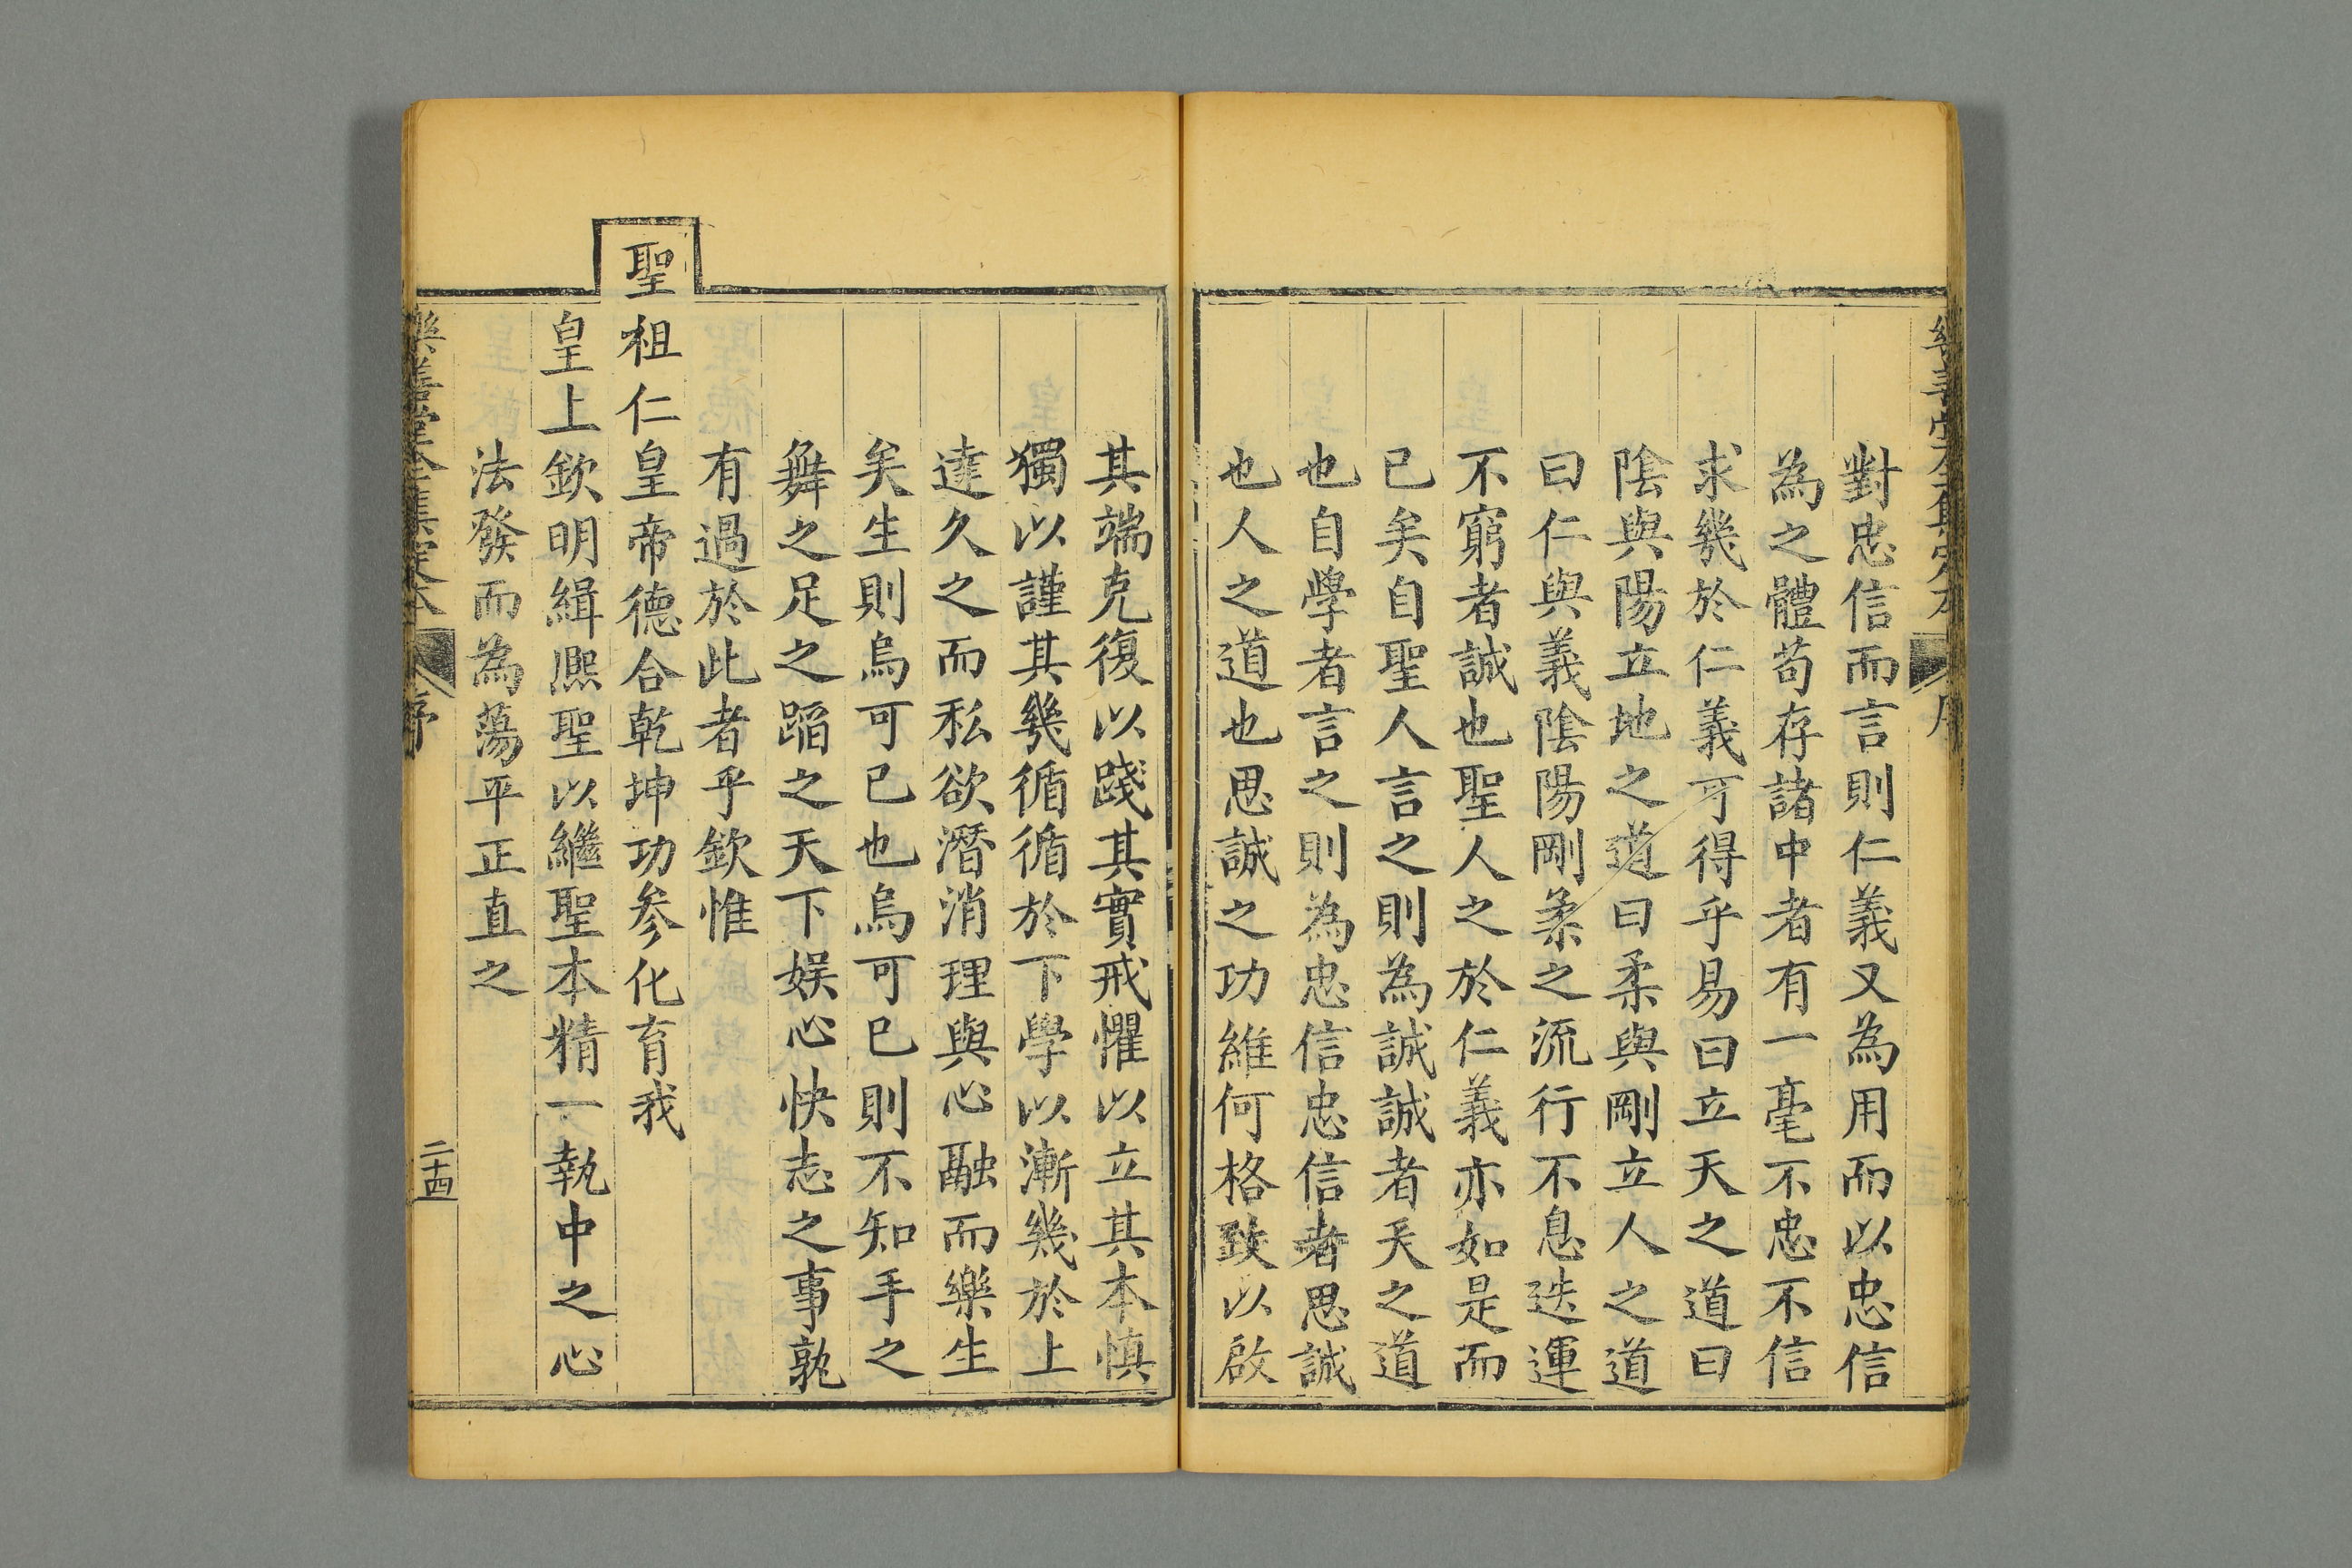 對忠信而言則仁義又為用而以忠信
為之體苟存諸中者有一毫不忠不信
求幾於仁義可得乎易曰立天之道曰
陰與陽立地之道曰柔與剛立人之道
曰仁與義陰陽剛柔之流行不息迭運
不窮者誠也聖人之於仁義亦如是而
已矣自聖人言之則為誠誠者天之道
也自學者言之則為忠信忠信者思誠
也人之道也思誠之功維何格致以啟
其端克復以踐其實戒懼以立其本慎
獨以謹其幾循循於下學以漸幾於上
達久之而私欲潛消理與心融而樂生
矣生則烏可已也烏可已則不知手之
舞之足之蹈之天下娛心快志之事孰
有過於此者乎欽惟
聖祖仁皇帝德合乾坤功參化育我
皇上欽明緝熙聖以繼聖本精一執中之心
法發而為蕩平正直之
樂善堂全集定本 序 二十四